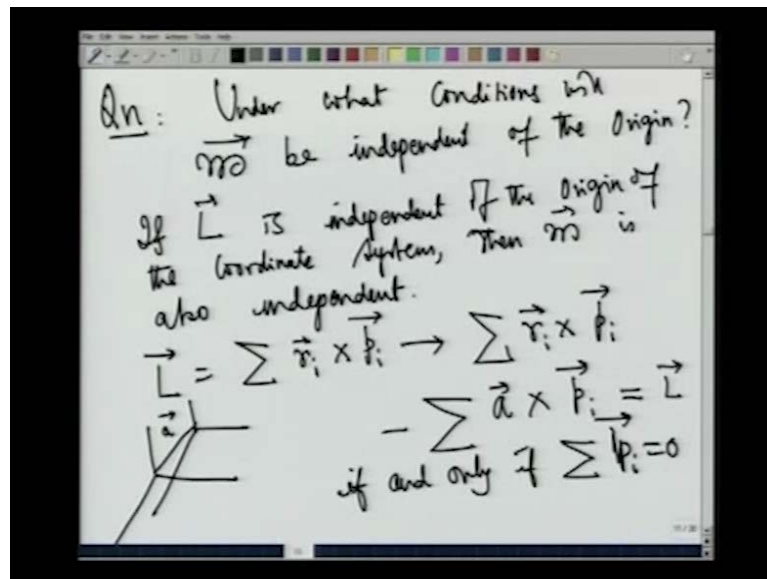 File Edit View Insert Actions Tools Help
Qn: Under what Conditions will
m⃗ be independent of the Origin?
If L⃗ is independent of the Origin of
the Coordinate System, then m⃗ is
also independent.
L⃗ = ∑ r⃗ᵢ × p⃗ᵢ → ∑ r⃗ᵢ × p⃗ᵢ
a⃗
- ∑ a⃗ × p⃗ᵢ = L⃗
if and only if ∑ p⃗ᵢ = 0